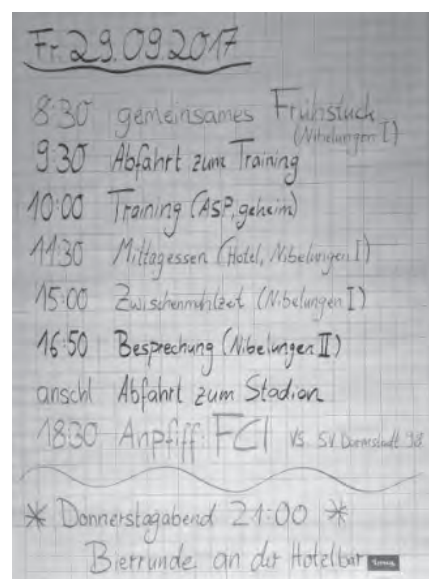 Fr. 29.09.2017
8:30 gemeinsames Frühstück
(Nibelungen I)
9:30 Abfahrt zum Training
10:00 Training (ASP, geheim)
11:30 Mittagessen (Hotel, Nibelungen I)
15:00 Zwischenmahlzeit (Nibelungen I)
16:50 Besprechung (Nibelungen II)
anschl Abfahrt zum Stadion
18:30 Anpfiff: FCI vs. SV Darmstadt 98
* Donnerstagabend 21:00 *
Bierrunde an der Hotelbar